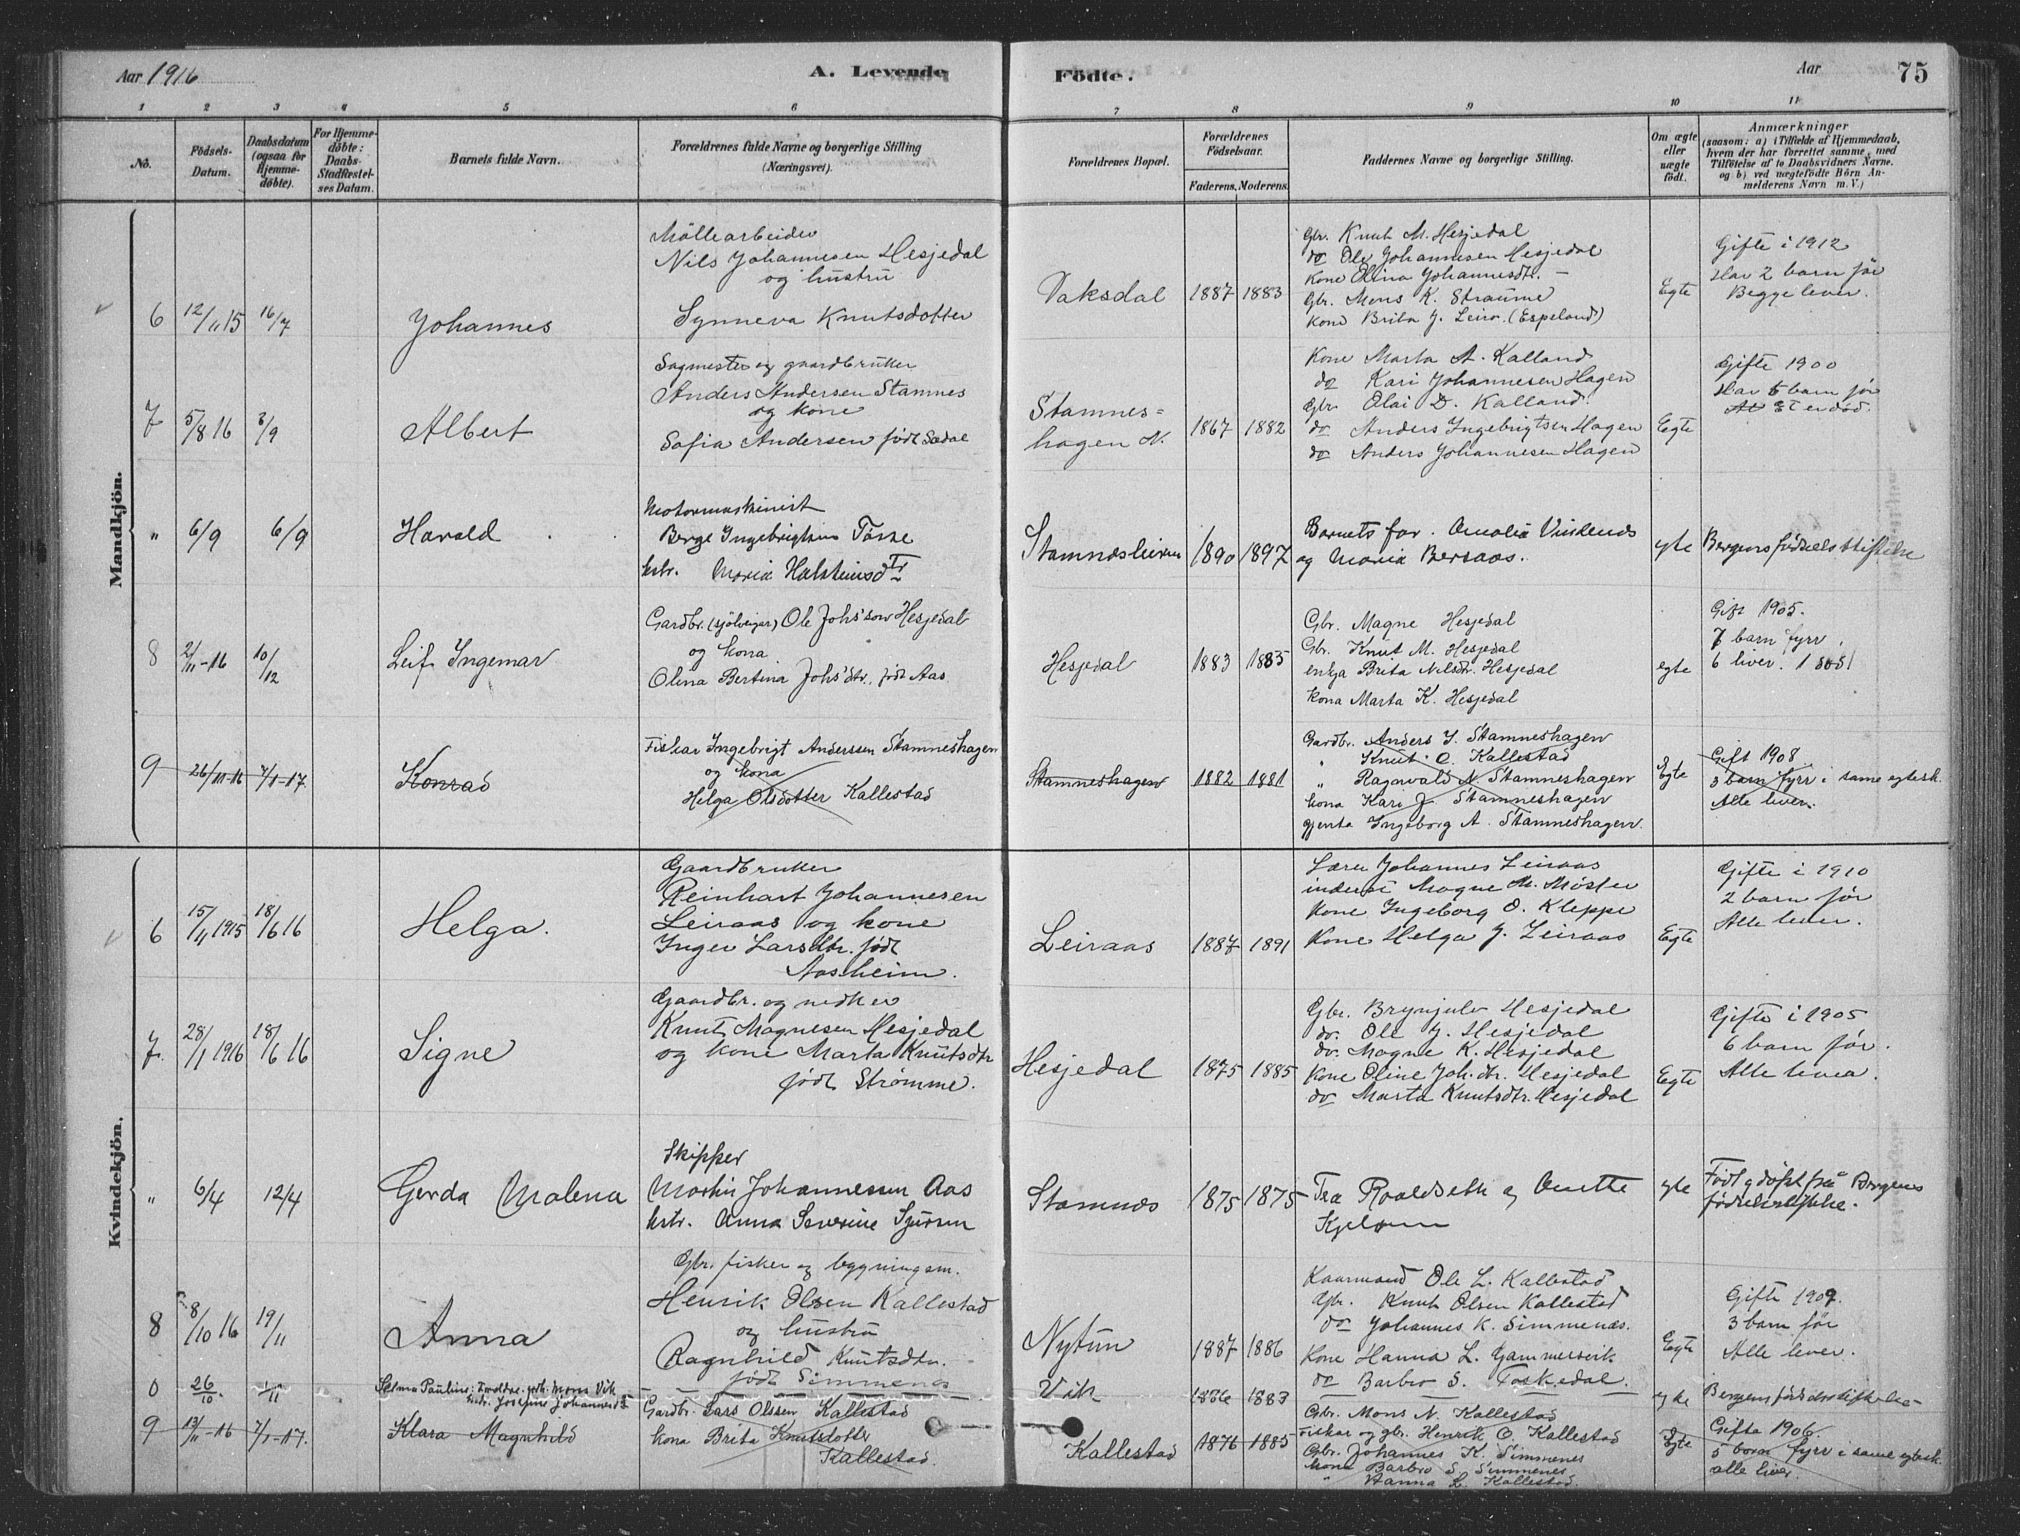 Aar 1916
A. Levende
Födte.
Aar
75
1 2 3 4 5 6 7 8 9 10 11
No.
Födsels-
Datum.
Daabsdatum
(ogsaa for
Hjemme-
döbte).
For Hjemme-
döbte:
Daabs-
Stadfæstel-
ses Datum.
Barnets fulde Navn.
Forældrenes fulde Navne og borgerlige Stilling
(Næringsvei).
Forældrenes Bopæl.
Forældrenes
Födselsaar.
Faderens. Moderens.
Faddernes Navne og borgerlig Stilling.
Om ægte
eller
uægte
födt.
Anmærkninger
(saasom: a) i Tilfælde af Hjemmedaab,
hvem der har forrettet samme, med
Tilföielse af to Daabsvidners Navne.
og b) ved uægtefödte Börn An-
melderens Navn m. V.)
Mandkjön.
6 12/11 15 16/7
Johannes
Möllearbeider
Nils Johannesen Hesjedal
og hustru
Synneva Knutsdotter
Vaksdal
1887 1883
Gbr. Knut M. Hesjedal
do Ole Johannesen Hesjedal
Kone Olina Johannesdtr. —
Gbr. Mons K. Straume
Kone Brita J. Leiro (Espeland)
Egte
Gifte i 1912
Har 2 barn før
Begge lever.
7 5/8 16 3/9
Albert
Sagmester og gaardbruker
Anders Andersen Stamnes
og kone
Sofia Andersen født Sædal
Stamnes=
hagen N.
1867 1882
Kone Marta A. Kalland
do Kari Johannesen Hagen
Gbr Olai D. Kalland
do Anders Ingebrigtsen Hagen
do Anders Johannesen Hagen
Egte
Gifte 1900
Har 5 barn før
" 6/9 6/9
Harald
Motormaskinist
Berge Ingebrigtsen Tørre
hstr. Maria Halsteinsdtr
Stamnesleiren
1890 1897
Barnets far. Amalia Vindenes
og Maria Bersaas.
egte
Bergens fødselsstiftelse
8 2/11-16 10/12
Leif Ingemar
Gardbr. (sjølveigar) Ole Johs'son Hesjedal
og kona
Olina Bertina Johs'dtr. født Aas
Hesjedal
1883 1885
Gbr. Magne Hesjedal
Gbr. Knut M. Hesjedal
enkja Brita Nilsdtr. Hesjedal
Kona Marta K. Hesjedal
egte
Gift 1905.
7 barn fyrr.
6 liver. 1 död
9 26/11-16 7/1-17.
Konrad
Fiskar Ingebrigt Anderssen Stamneshagen
og kona
Helga Olsdotter Kallestad
Stamneshagen
1882 1881
Gardbr. Anders J. Stamneshagen
" Knut O. Kallestad
" Ragnvald N. Stamneshagen
kona Kari J. Stamneshagen
gjenta Ingeborg A. Stamneshagen.
Egte
Gift 1908
3 barn fyrr i same egtesk.
Alle liver.
Kvindekjön.
6 15/11 1915 18/6 16
Helga.
Gaardbruker
Reinhart Johannesen
Leiraas og kone
Inger Larsdtr. født
Aasheim.
Leiraas
1887 1891
Lærer Johannes Leiraas
inderst Magne M. Møster
Kone Ingeborg O. Kleppe
Kone Helga J. Leiraas
Egte
Gifte i 1910
2 barn før
Alle lever.
7. 28/1 1916 18/6 16
Signe
Gaardbr. og
Knut Magnesen Hesjedal
og kone Marta Knutsdtr
født Strømme.
Hesjedal
1875 1885
Gbr. Brynjulv Hesjedal
do. Ole J. Hesjedal
do. Magne K. Hesjedal
Kone Oline Joh.dtr. Hesjedal
do Marta Knutsdtr. Hesjedal
Egte
Gifte i 1905
6 barn før.
Alle leva.
" 6/4 12/4
Gerda Malena
Skipper
Martin Johannessen Aas
hstr. Anna Severine Sjursen
Stamnes
1875 1875
Tea Roaldseth og Anette
egte
Født og døpt på Bergens
fødselsstiftelse.
8 8/10 16 19/11
Anna
Gbr. fisker og bygningsm.
Henrik Olsen Kallestad
og hustru
Ragnhild Knutsdtr.
født Simmenes
Nytun
1887 1886
Kaarmand Ole L. Kallestad
Gbr. Knut Olsen Kallestad
do Johannes K. Simmenæs.
Kone Hanna L. Gammersvik
do Barbro S. Toskedal.
Egte
Gifte 1909.
3 barn før
Alle lever.
0 26/10. 1/11
Selma Pauline: Forældre: Mons Vik
Vik
1886 1883
egte
Bergens fødselsstiftelse
9 13/11-16 7/1-17.
Klara Magnhild
Gardbr. Lars Olssen Kallestad
kona Brita Knutsdotter
Kallestad.
Kallestad
1876 1885
Gbr. Mons N. Kallestad
Fiskar og gbr. Henrik O. Kallestad
Gbr. Johannes K. Simmenes
kona Barbro S. Simmenes
" Hanna L. Kallestad.
Egte
Gifta 1906.
5 born fyrr i same egtesk.
alle liver.